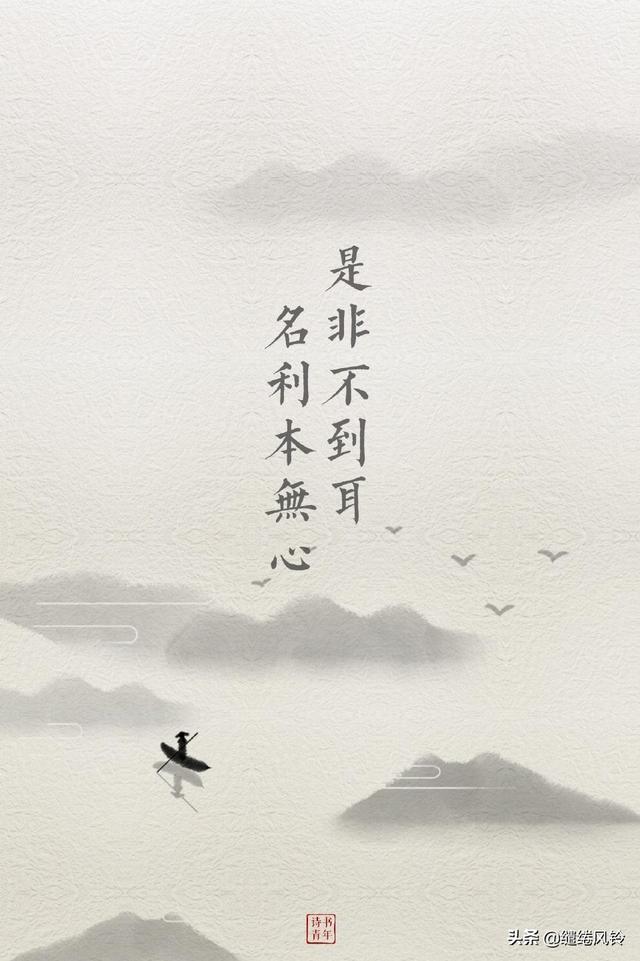 是非不到耳
名利本無心
诗书
青年
头条 @缱绻风铃